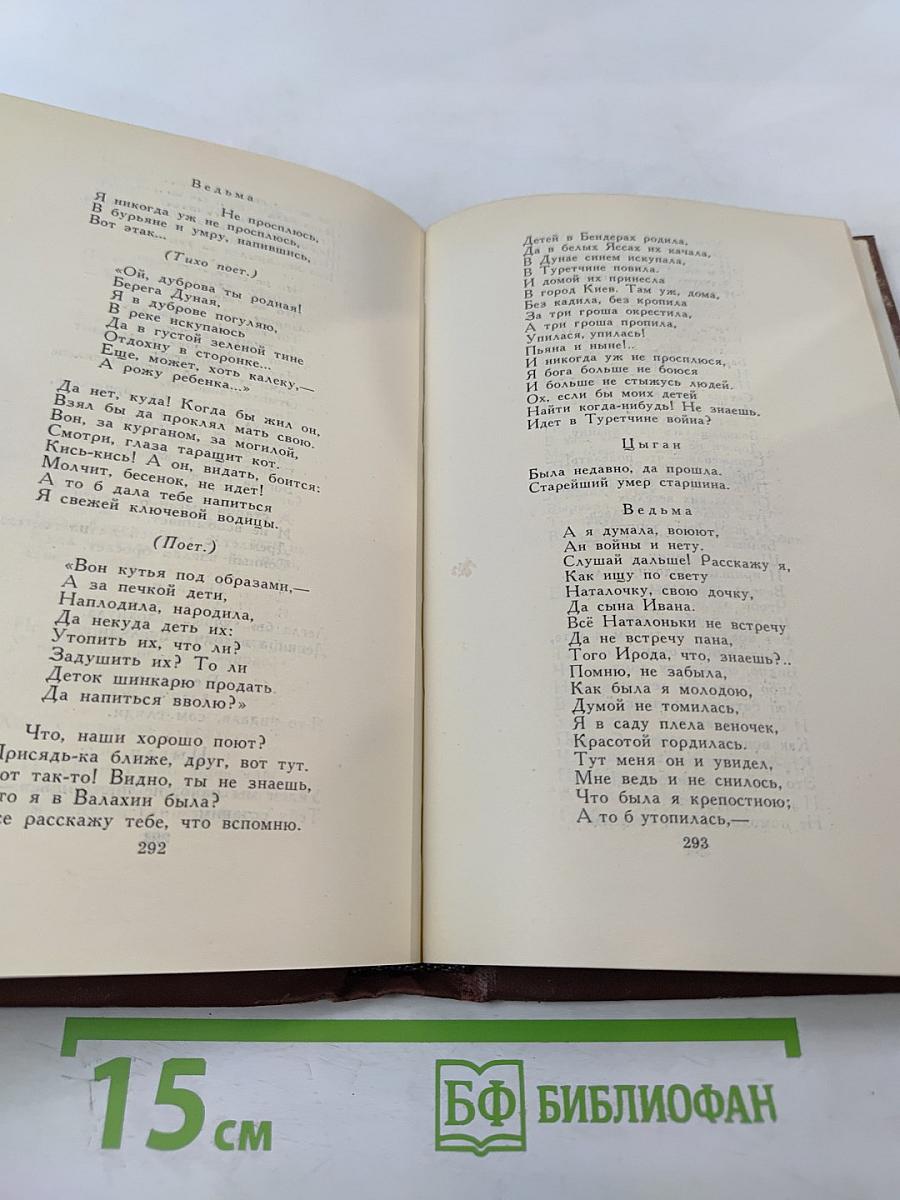 Ведьма
Не просплюсь,
Я никогда уж не просплюсь,
В бурьяне и умру, напившись,
Вот этак...
(Тихо поет.)
«Ой, дуброва ты родная!
Берега Дуная,
Я в дуброве погуляю,
В реке искупаюсь
Да в густой зеленой тине
Отдохну в сторонке...
Еще, может, хоть калеку,—
А рожу ребенка...»
Да нет, куда! Когда бы жил он,
Взял бы да проклял мать свою.
Вон, за курганом, за могилой,
Смотри, глаза таращит кот.
Кись-кись! А он, видать, боится:
Молчит, бесенок, не идет!
А то б дала тебе напиться
Я свежей ключевой водицы.
(Поет.)
«Вон кутья под образами,—
А за печкой дети,
Наплодила, народила,
Да некуда деть их:
Утопить их, что ли?
Задушить их? То ли
Деток шинкарю продать
Да напиться вволю?»
Что, наши хорошо поют?
Присядь-ка ближе, друг, вот тут.
от так-то! Видно, ты не знаешь,
то я в Валахии была?
се расскажу тебе, что вспомню.
292
Детей в Бендерах родила,
Да в белых Яссах их качала,
В Дунае синем искупала,
В Туретчине повила.
И домой их принесла
В город Киев. Там уж, дома,
Без кадила, без кропила
За три гроша окрестила,
А три гроша пропила,
Упилася, упилась!
Пьяна и ныне!..
И никогда уж не просплюся,
Я бога больше не боюся
И больше не стыжусь людей.
Ох, если бы моих детей
Найти когда-нибудь! Не знаешь.
Идет в Туретчине война?
Цыган
Была недавно, да прошла.
Старейший умер старшина.
Ведьма
А я думала, воюют,
Ан войны и нету.
Слушай дальше! Расскажу я,
Как ищу по свету
Наталочку, свою дочку,
Да сына Ивана.
Всё Наталоньки не встречу
Да не встречу пана,
Того Ирода, что, знаешь?..
Помню, не забыла,
Как была я молодою,
Думой не томилась,
Я в саду плела веночек,
Красотой гордилась.
Тут меня он и увидел,
Мне ведь и не снилось,
Что была я крепостною;
А то б утопилась,—
293
15 см
БФ БИБЛИОФАН